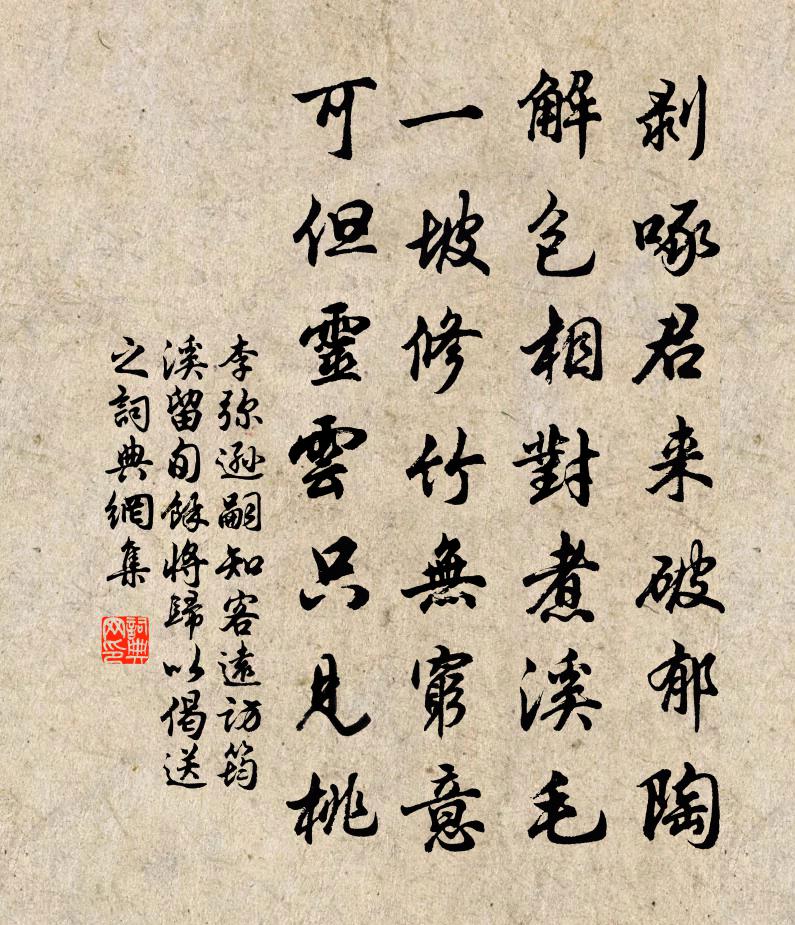 剥啄君来破郁陶
解包相對煮溪毛
一坡修竹無窮意
可但靈雲只見桃
李弥遜嗣知客遠訪筠
溪留旬餘将歸以偈送
之詞典網集
詞典
网印